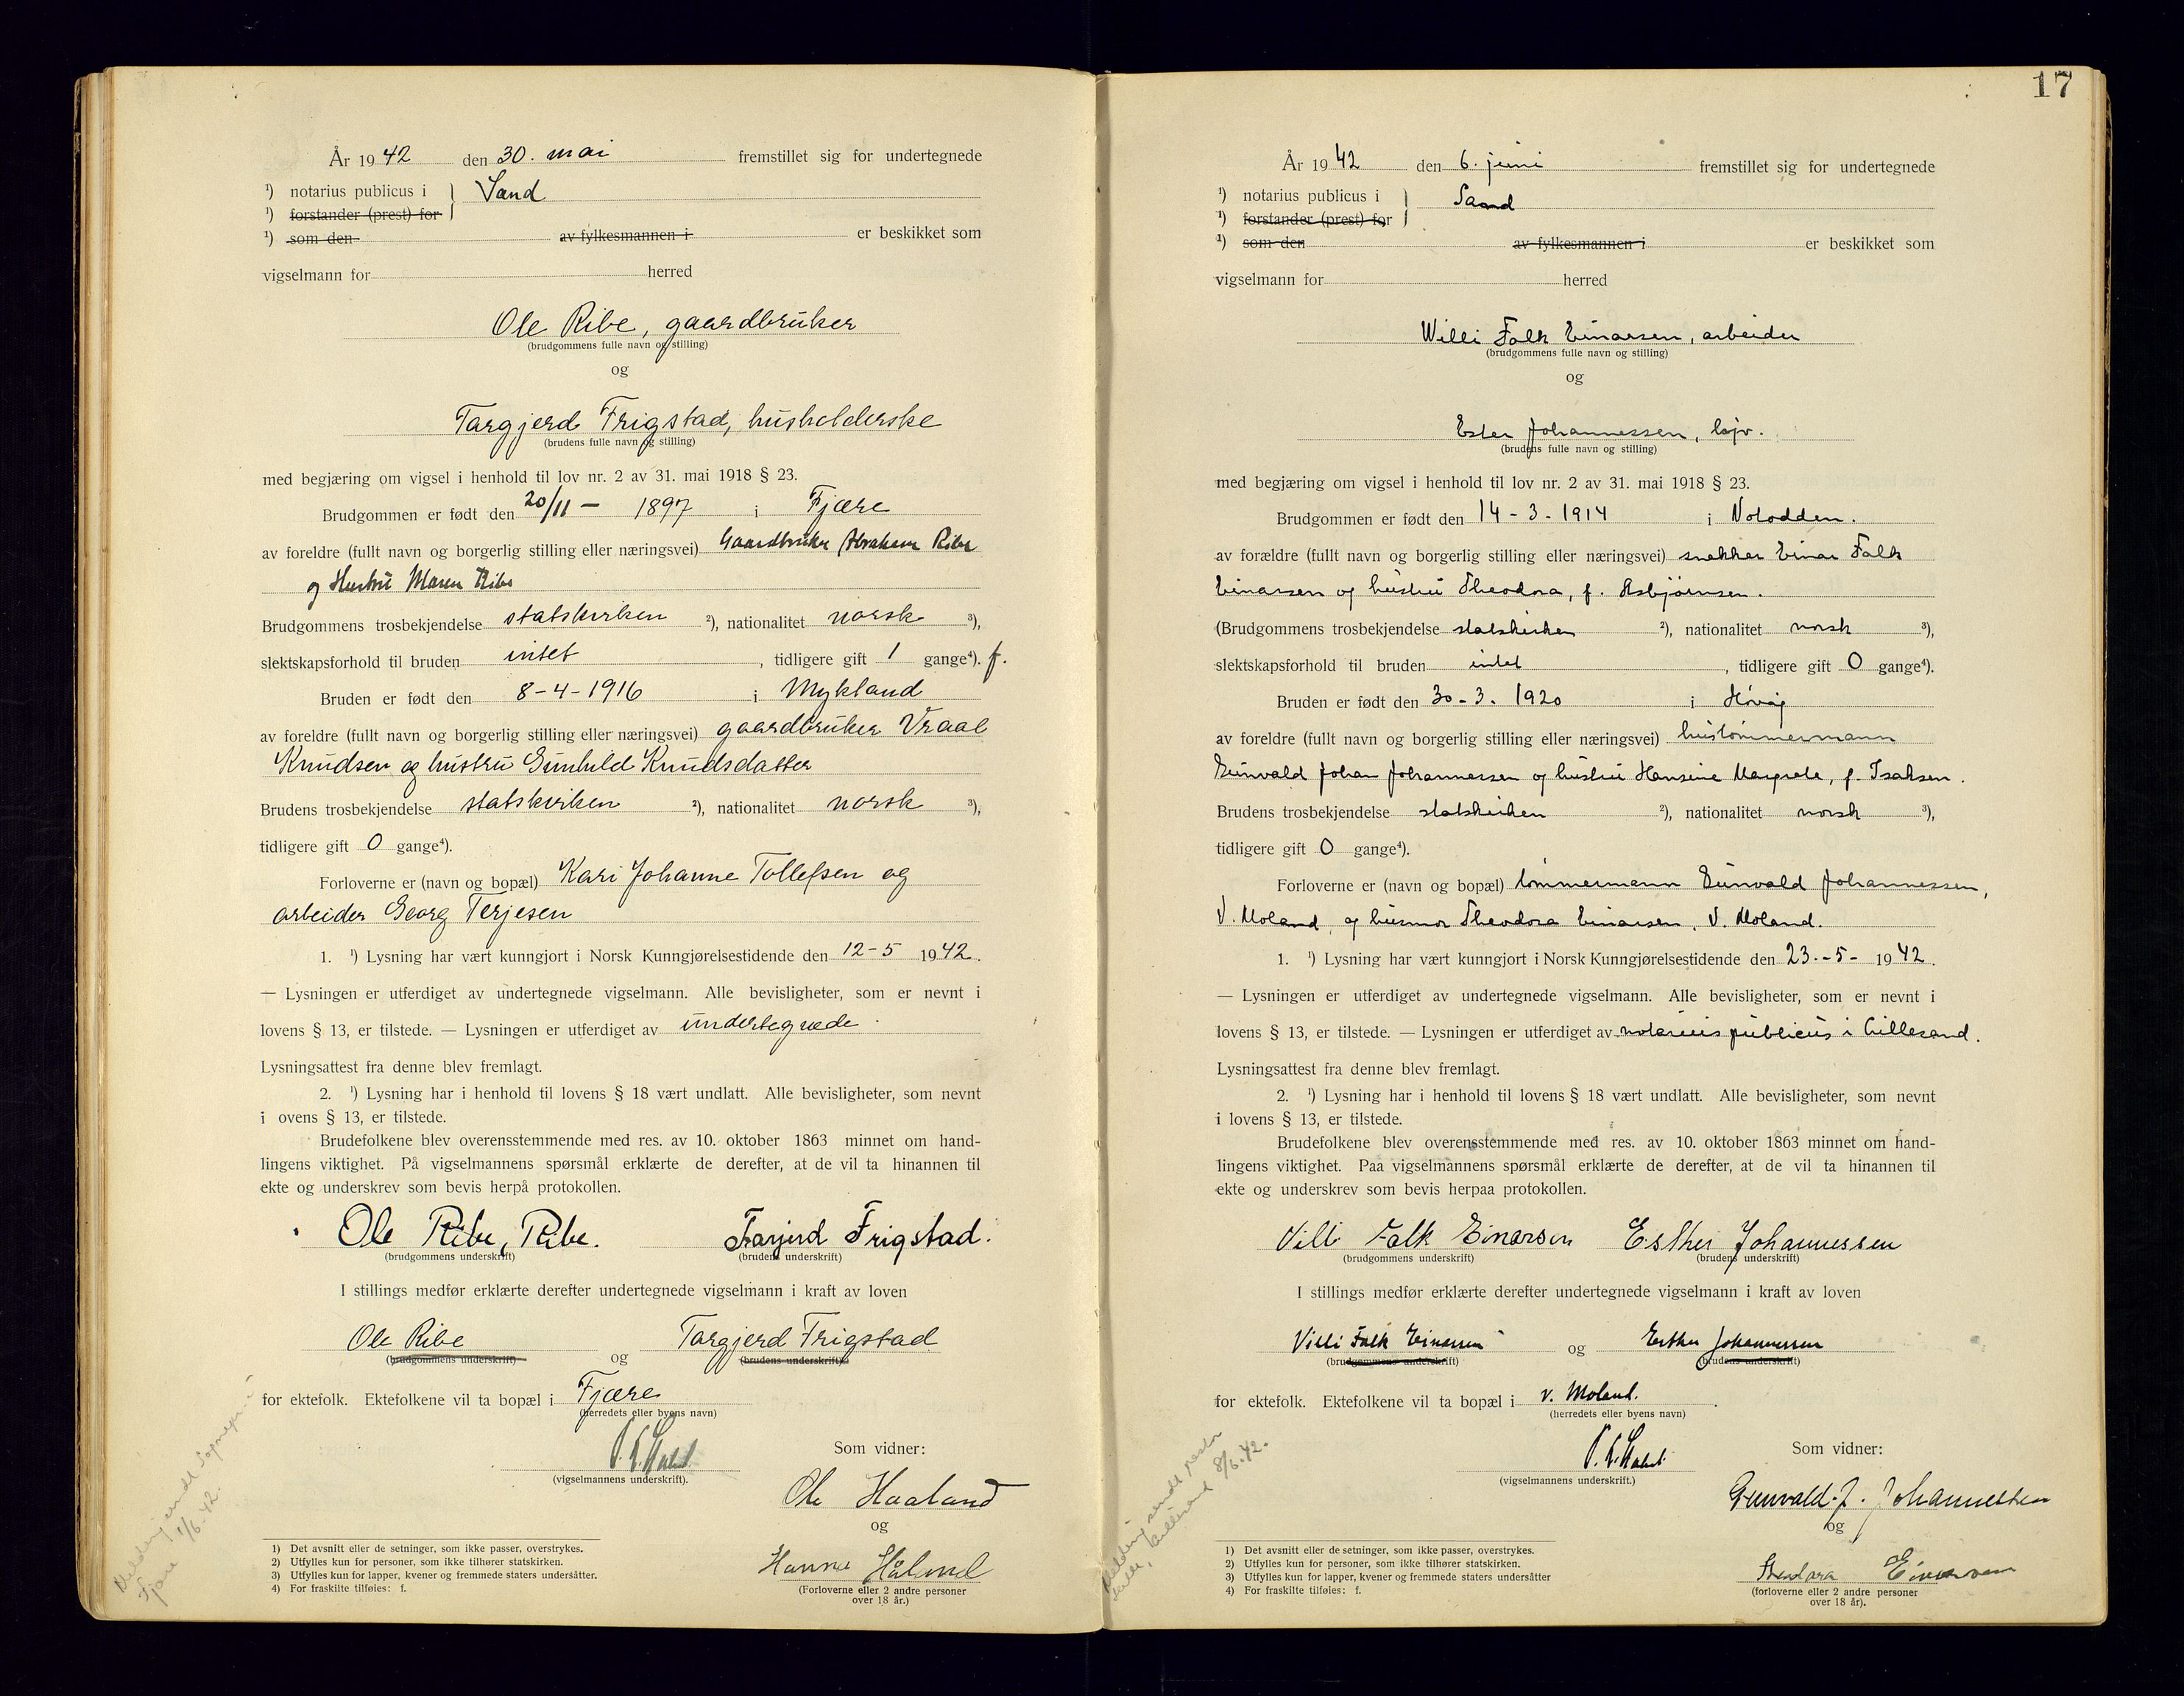 År 1942 den 30. mai fremstillet sig for undertegnede
1) notarius publicus i } Sand
1) forstander (prest) for
1) som den av fylkesmannen i er beskikket som
vigselmann for herred
Ole Ribe, gaardbruker
(brudgommens fulle navn og stilling)
og
Targjerd Frigstad, husholderske
(brudens fulle navn og stilling)
med begjæring om vigsel i henhold til lov nr. 2 av 31. mai 1918 § 23.
Brudgommen er født den 20/11 - 1897 i Fjære
av foreldre (fullt navn og borgerlig stilling eller næringsvei) Gaardbruker Abraham Ribe
og Hustru Maren Ribe
Brudgommens trosbekjendelse statskirken 2), nationalitet norsk 3),
slektskapsforhold til bruden intet, tidligere gift 1 gange4). f.
Bruden er født den 8-4-1916 i Mykland
av foreldre (fullt navn og borgerlig stilling eller næringsvei) gaardbruker Vraal
Knudsen og hustru Gunhild Knudsdatter
Brudens trosbekjendelse statskirken 2), nationalitet norsk 3),
tidligere gift 0 gange4).
Forloverne er (navn og bopæl) Kari Johanne Tollefsen og
arbeider Georg Terjesen
1. 1) Lysning har vært kunngjort i Norsk Kunngjørelsestidende den 12-5 1942.
— Lysningen er utferdiget av undertegnede vigselmann. Alle bevisligheter, som er nevnt i
lovens § 13, er tilstede. — Lysningen er utferdiget av undertegnede
Lysningsattest fra denne blev fremlagt.
2. 1) Lysning har i henhold til lovens § 18 vært undlatt. Alle bevisligheter, som nevnt
i ovens § 13, er tilstede.
Brudefolkene blev overensstemmende med res. av 10. oktober 1863 minnet om hand-
lingens viktighet. På vigselmannens spørsmål erklærte de derefter, at de vil ta hinannen til
ekte og underskrev som bevis herpå protokollen.
Ole Ribe, Ribe. Tarjerd Frigstad.
(brudgommens underskrift) (brudens underskrift)
I stillings medfør erklærte derefter undertegnede vigselmann i kraft av loven
Ole Ribe og Targjerd Frigstad
(brudgommens underskrift) (brudens underskrift)
for ektefolk. Ektefolkene vil ta bopæl i Fjære
(herredets eller byens navn)
(vigselmannens underskrift).
Som vidner:
Ole Haaland
og
Hanna Håland
(Forloverne eller 2 andre personer
over 18 år.)
Melding sendt
Fjære 1/6-42.
1) Det avsnitt eller de setninger, som ikke passer, overstrykes.
2) Utfylles kun for personer, som ikke tilhører statskirken.
3) Utfylles kun for lapper, kvener og fremmede staters undersåtter.
4) For fraskilte tilføies: f.
17
År 1942 den 6. juni fremstillet sig for undertegnede
1) notarius publicus i } Sand
1) forstander (prest) for
1) som den av fylkesmannen i er beskikket som
vigselmann for herred
Willi Falk Einarsen, arbeider
(brudgommens fulle navn og stilling)
og
Ester Johannessen, hojv.
(brudens fulle navn og stilling)
med begjæring om vigsel i henhold til lov nr. 2 av 31. mai 1918 § 23.
Brudgommen er født den 14-3-1914 i Notodden.
av forældre (fullt navn og borgerlig stilling eller næringsvei) snekker Einar Falk
Einarsen og hustru Theodora, f. Asbjørnsen.
(Brudgommens trosbekjendelse statskirken 2), nationalitet norsk 3),
slektskapsforhold til bruden intet, tidligere gift 0 gange4).
Bruden er født den 30-3. 1920 i Høvåg
av foreldre (fullt navn og borgerlig stilling eller næringsvei) hustømmermann
Gunvald Johan Johannessen og hustru Hansine Margrete, f. Isaksen.
Brudens trosbekjendelse statskirken 2), nationalitet norsk 3),
tidligere gift 0 gange4).
Forloverne er (navn og bopæl) tømmermann Gunvald Johannessen,
V. Moland, og husmor Theodora Einarsen, V. Moland.
1. 1) Lysning har vært kunngjort i Norsk Kunngjørelsestidende den 23.-5- 1942.
— Lysningen er utferdiget av undertegnede vigselmann. Alle bevisligheter, som er nevnt i
lovens § 13, er tilstede. — Lysningen er utferdiget av notarius publicus i Lillesand.
Lysningsattest fra denne blev fremlagt.
2. 1) Lysning har i henhold til lovens § 18 vært undlatt. Alle bevisligheter, som nevnt
i lovens § 13, er tilstede.
Brudefolkene blev overensstemmende med res. av 10. oktober 1863 minnet om hand-
lingens viktighet. Paa vigselmannens spørsmål erklærte de derefter, at de vil ta hinannen til
ekte og underskrev som bevis herpaa protokollen.
Villi Falk Einarsen Esther Johannessen
(brudgommens underskrift) (brudens underskrift)
I stillings medfør erklærte derefter undertegnede vigselmann i kraft av loven
Villi Falk Einarsen og Esther Johannessen
(brudgommens underskrift) (brudens underskrift)
for ektefolk. Ektefolkene vil ta bopæl i V. Moland.
(herredets eller byens navn)
(vigselmannens underskrift.)
Som vidner:
Gunvald J. Johannessen
og
Theodora Einarsen
(forloverne eller 2 andre personer
over 18 år).
Melding sendt
Lillesand 8/6-42.
1) Det avsnitt eller de setninger, som ikke passer, overstrykes.
2) Utfylles kun for personer, som ikke tilhører statskirken.
3) Utfylles kun for lapper, kvener og fremmede staters undersåtter
4) For fraskilte tilføies: f.